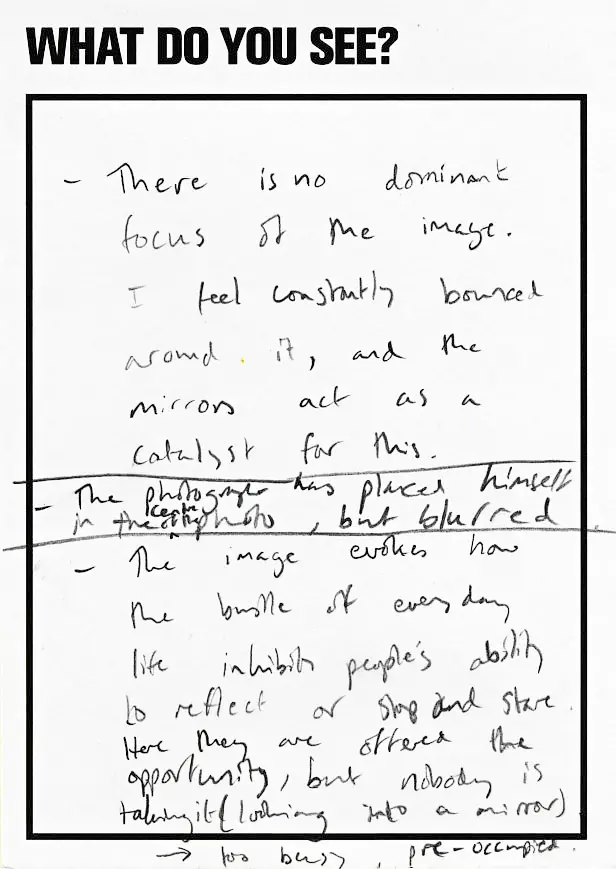 WHAT DO YOU SEE?
- There is no dominant
focus of the image.
I feel constantly bounced
around it, and the
mirrors act as a
catalyst for this.
- The photographer has placed himself
in the centre of the photo, but blurred
- The image evokes how
the bustle of everyday
life inhibits people's ability
to reflect or stop and stare.
Here they are offered the
opportunity, but nobody is
taking it (looking into a mirror)
→ too busy, pre-occupied.